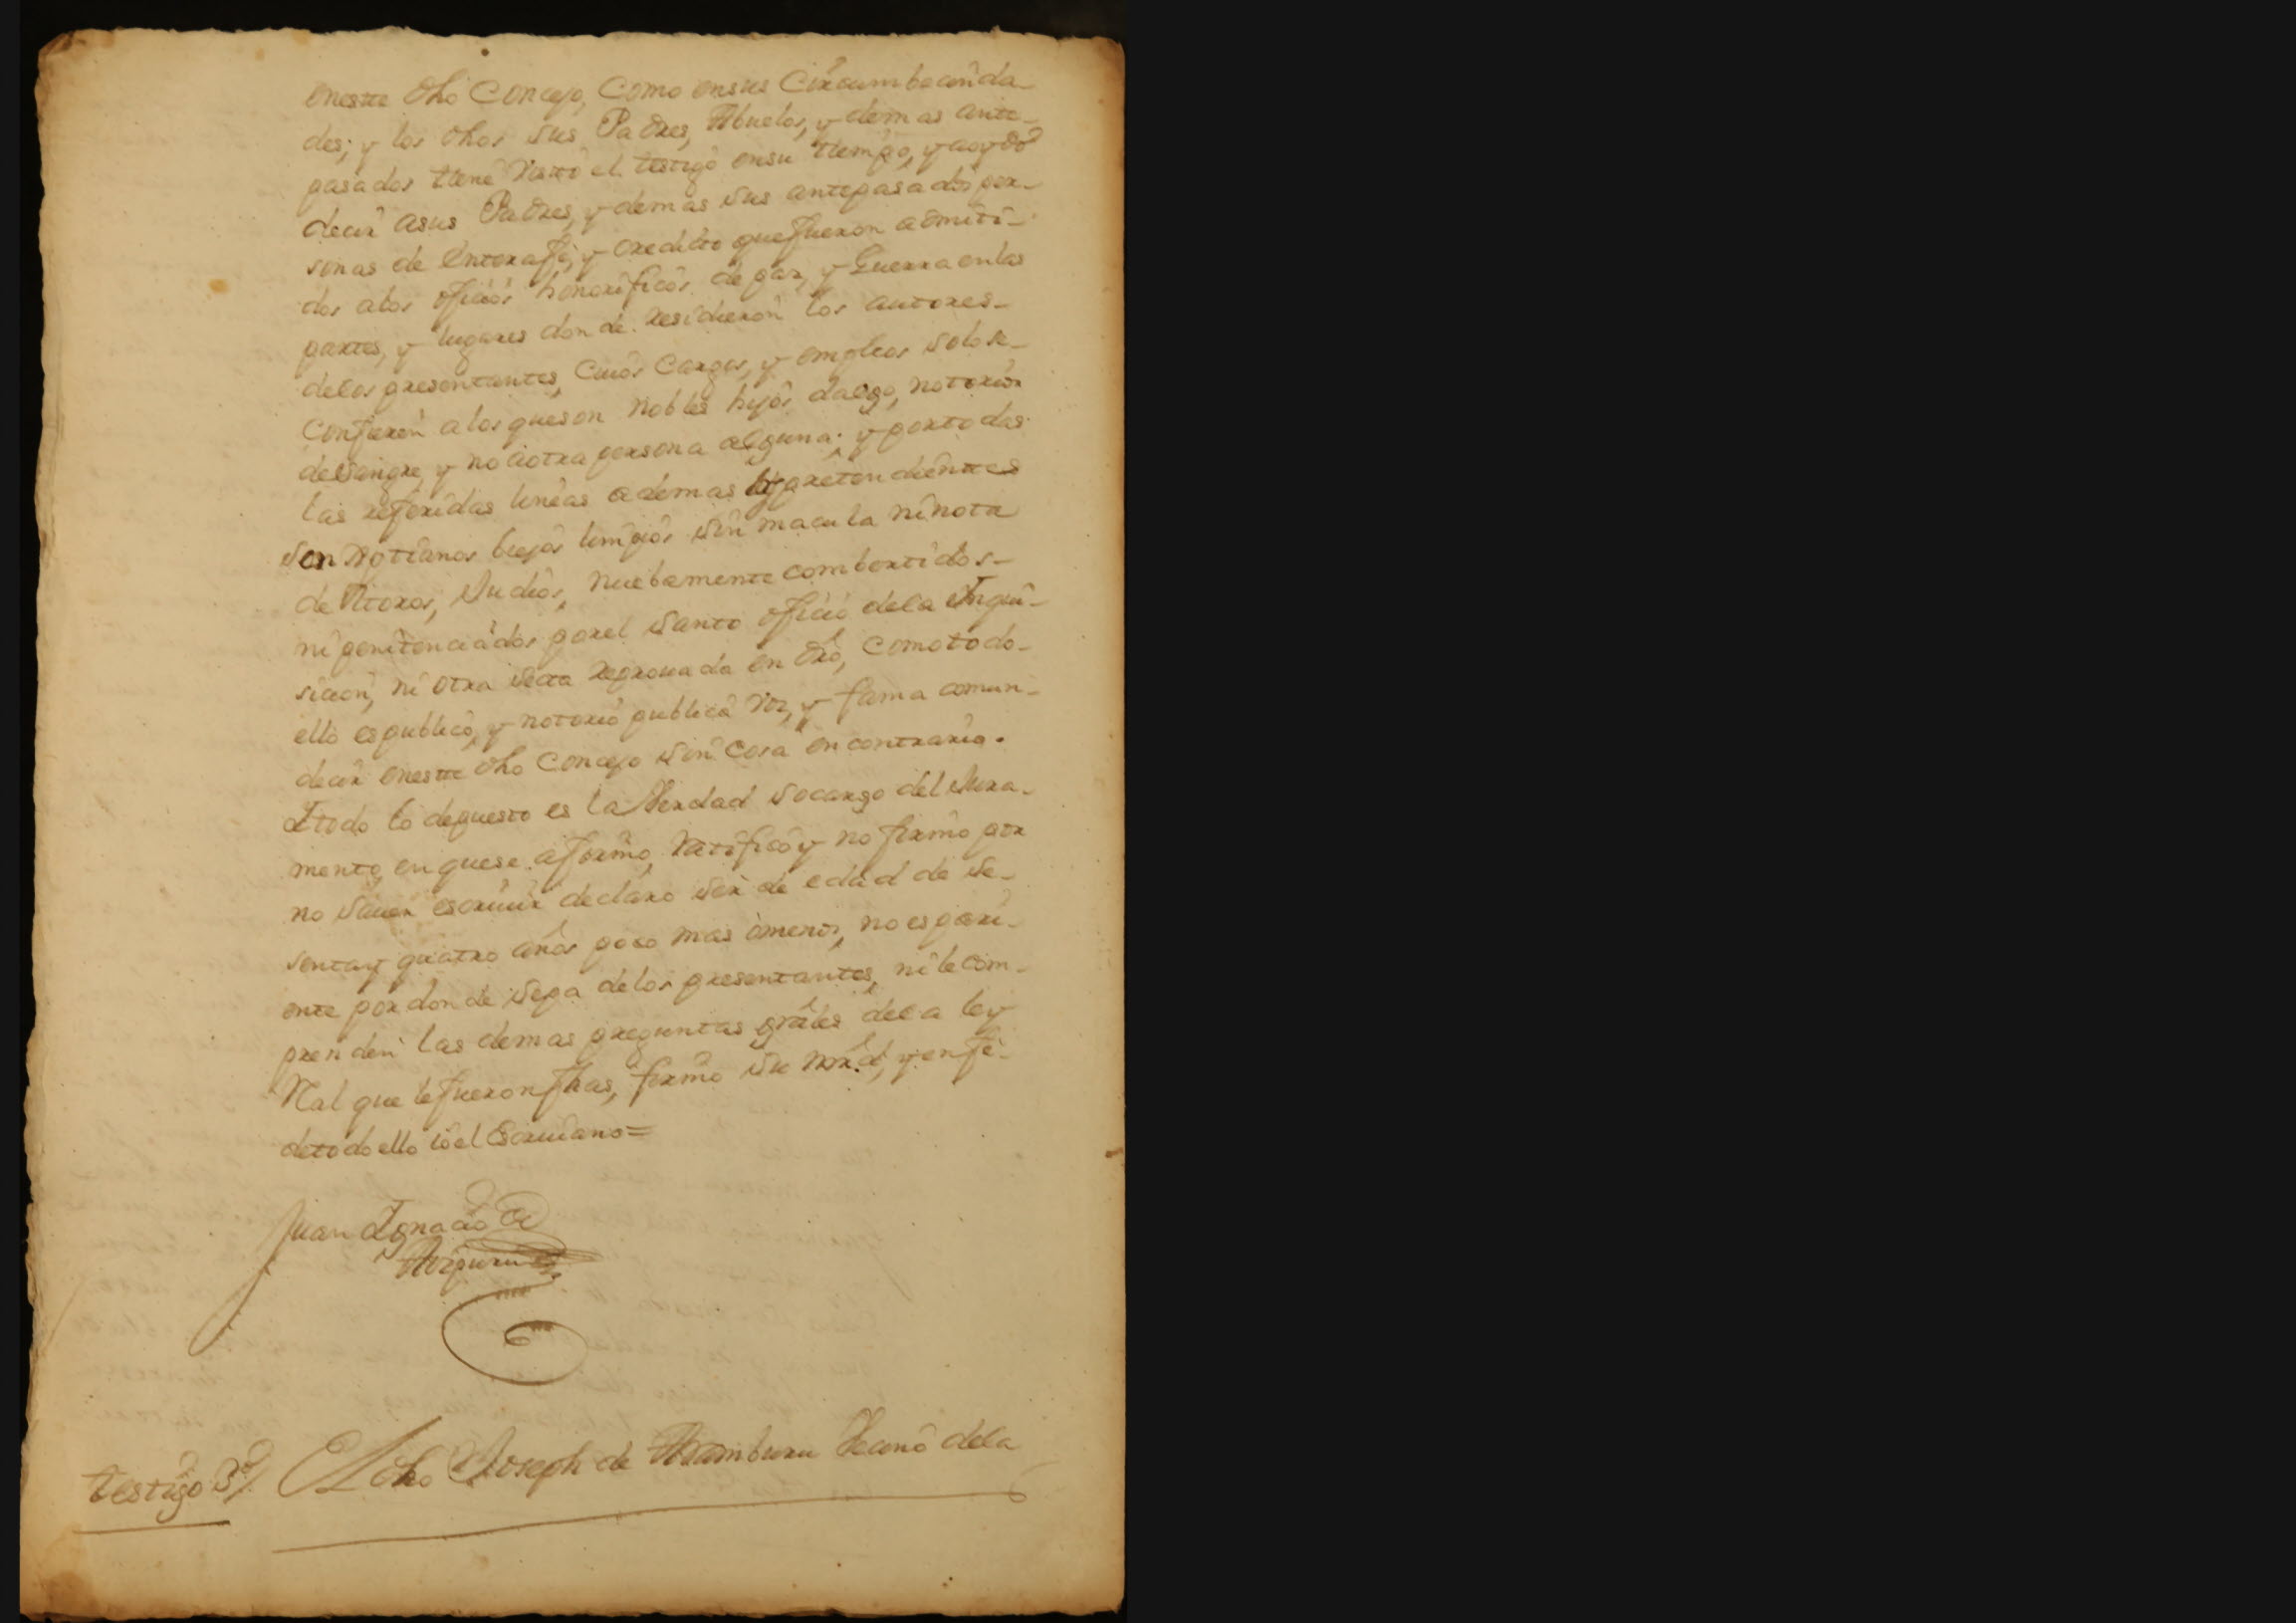 eneste dho Concejo, Como ensus Circumbecinda-
des; y los dhos sus Padres, Abuelos, y demas ante-
pasados tiene Visto el testigo ensu tiempo, y aoydo
decir asus Padres, y demas sus antepasados per-
sonas de enterafe, y credito quefueron admiti-
dos alos oficios honorificos de paz, y Guerra enlas
partes, y lugares donde residieron los autores-
delos presentantes, Cuios Cargos, y empleos solose-
Confieren alos queson nobles hijos dalgo, notorios
desangre, y no áotra persona alguna; y portodas
las referidas lineas ademas los pretendientes
son Xptianos biejos limpios sin macula ninota
de Moros, Judios, nuebamente combertidos-
ni penitenciados porel santo oficio dela Inqui-
sicion, ni otra secta reprouada en dro, comotodo-
ello espublico, y notorio publica voz, y fama comun-
decir eneste dho Concejo sin Cosa en contrario.
Itodo lo depuesto es la Verdad socargo del Jura-
mento, en quese afirmo, ratificó y no firmo por
no sauer escriuir declaro ser de edad de se-
sentay quatro años poco mas ómenos, no espari-
ente pordonde sepa delos presentantes, nile com-
prenden las demas preguntas grales dela ley
Real que lefueronfhas, firmo su mrd, yenfe-
detodoello ioel Escriuano=
Juan Ignacio de
Aizpuru
testigo 3º/. El dho Joseph de Aramburu Vecino dela